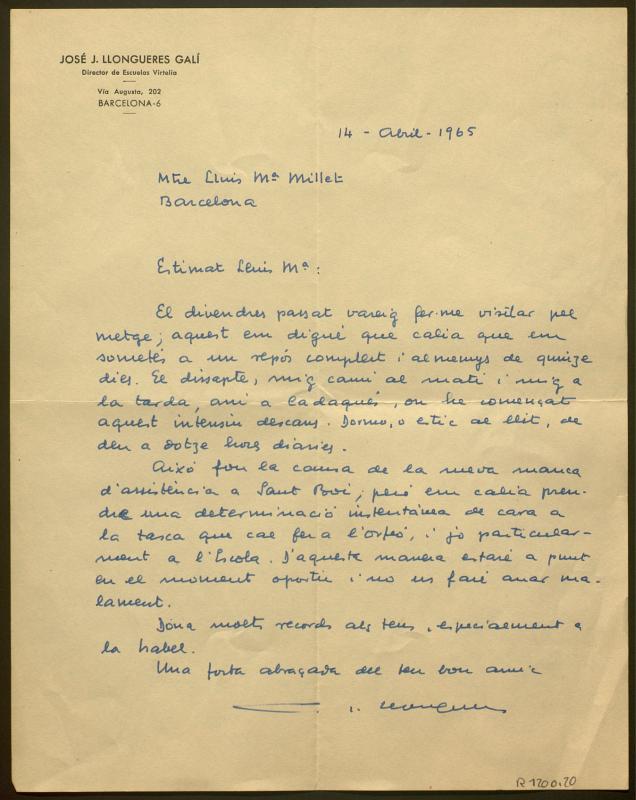 JOSÉ J. LLONGUERES GALÍ
Director de Escuelas Virtelia
Vía Augusta, 202
BARCELONA-6
14 - Abril - 1965
Mtre Lluis Mª Millet
Barcelona
Estimat Lluis Mª:
El divendres passat vareig fer-me visitar pel
metge; aquest em digué que calia que em
sometés a un repós complert i almenys de quinze
dies. El dissapte, mig camí al matí i mig a
la tarda, aní a Cadaqués, on he començat
aquest intensiu descans. Dormo, o estic al llit, de
deu a dotze hores diaries.
Aixó fou la causa de la meva manca
d'assistència a Sant Boi; peró em calia pren-
dre una determinació instantánea de cara a
la tasca que cal fer a l'orfeó, i jo particular-
ment a l'Escola. D'aquesta manera estaré a punt
en el moment oportú i no us faré anar ma-
lament.
Dona molts records als teus, especialment a
la Isabel.
Una forta abraçada del teu bon amic
J. Llongueres
R 1200.20